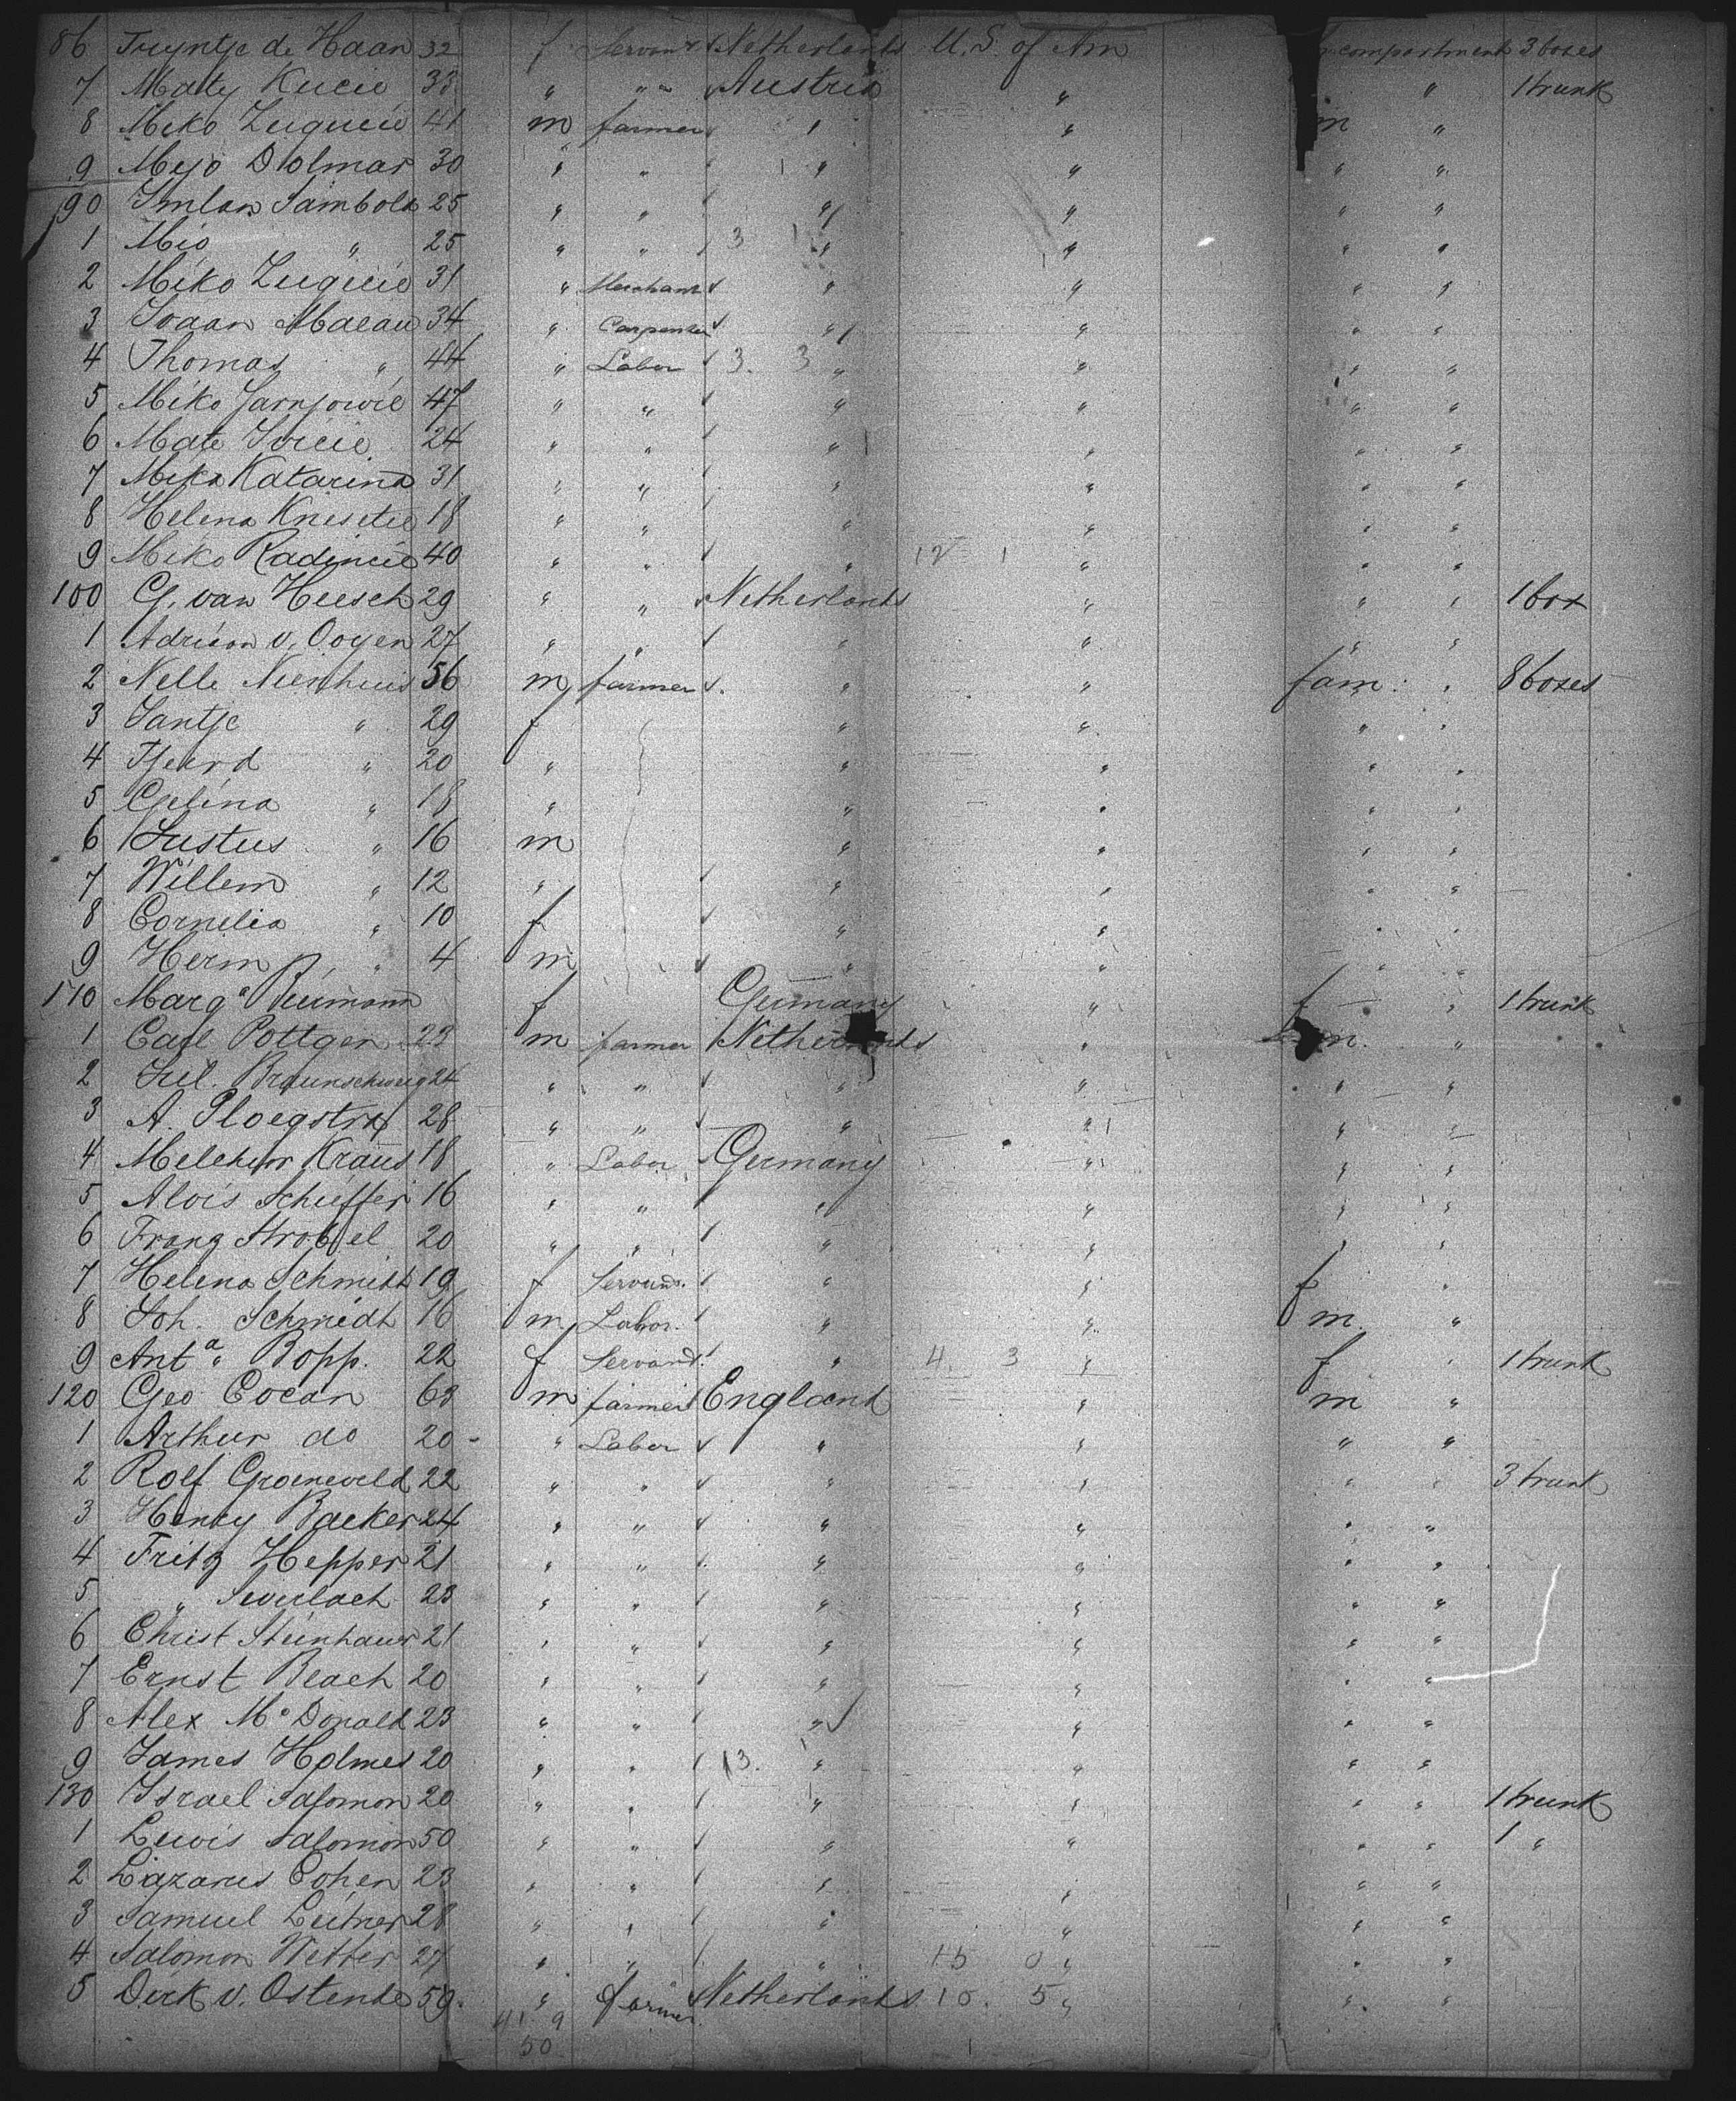 86 Truyntje de Haan 32 f Servant ✓ Netherlands U. S. of Am compartment 3 boxes
7 Maty Kucic 33 " " " Austria " " 1 trunk
8 Miko Zugucic 41 m farmer " " m "
9 Mijo Dolmar 30 " " " " " "
90 Imlan Sambola 25 " " " " " "
1 Mio " 25 " " 3 1 " " " "
2 Miko Zugucic 31 " Merchant ✓ " " " "
3 Ivaan Malau 34 " Carpenter ✓ " " " "
4 Thomas " 44 " Labor ✓ 3. 3 " " " "
5 Miko Jarnjowic 47 " " ✓ " " " "
6 Mate Ivicic 24 " " " " " "
7 Mika Katarina 31 " " " " " "
8 Helena 18 " " " " " "
9 Miko Radincic 40 " " ✓ " 12 1 " " "
100 G. van Heesch 29 " " ✓ Netherlands " " " 1 box
1 Adrian v. Ooyen 27 " " ✓ " " " "
2 Nelle Nienhuis 56 m farmer ✓ " " fam: " 8 boxes
3 Jantje " 29 f " " " "
4 Tjeerd " 20 " " " " "
5 Gelina " 18 " " " " "
6 Justus " 16 m " " " "
7 Willem " 12 " ✓ " " " "
8 Cornelia " 10 f ✓ " " " "
9 Herm " 4 m ✓ " " " "
110 Marg.a Reumann f Germany " f " 1 trunk
1 Carl Pottgen 23 m farmer Netherlands " m. "
2 Jul. Braunschweig 24 " " ✓ " " " "
3 A. Ploegstra 28 " " ✓ " " " "
4 Melchior Kraus 18 " Labor ✓ Germany " " "
5 Alois Schieffer 16 " " " " " "
6 Franz Strobel 20 " " " " " "
7 Helena Schmitt 19 f Servant. " " f "
8 Joh. Schmidt 16 m Labor. " " m. "
9 Ant.a Bopp. 22 f Servant. " 4. 3 " f " 1 trunk
120 Geo Cocan 63 m farmer England " m "
1 Arthur do 20 " Labor ✓ " " " "
2 Rolf Groeneveld 22 " " ✓ " " " " 3 trunk
3 Henry Backer 24 " " ✓ " " " "
4 Fritz Hepper 21 " " " " " "
5 " 23 " " ✓ " " " "
6 Christ Steinhauer 21 " " ✓ " " " "
7 Ernst Beach 20 " " " " " "
8 Alex Mc Donald 23 " " " ✓ " " "
9 James Holmes 20 " " 13. 1 " " " "
130 Israel Salomon 20 " " " " " " 1 trunk
1 Lewis Salomon 50 " " ✓ " " " " 1 "
2 Lazarus Cohen 23 " " " " " "
3 Samuel Leitner 28 " " " " " "
4 Salomon Wetter 27 " " " 15 0 " " "
5 Dirk v. Ostende 59. " farmer Netherlands 10. 5 " " "
41 9
50